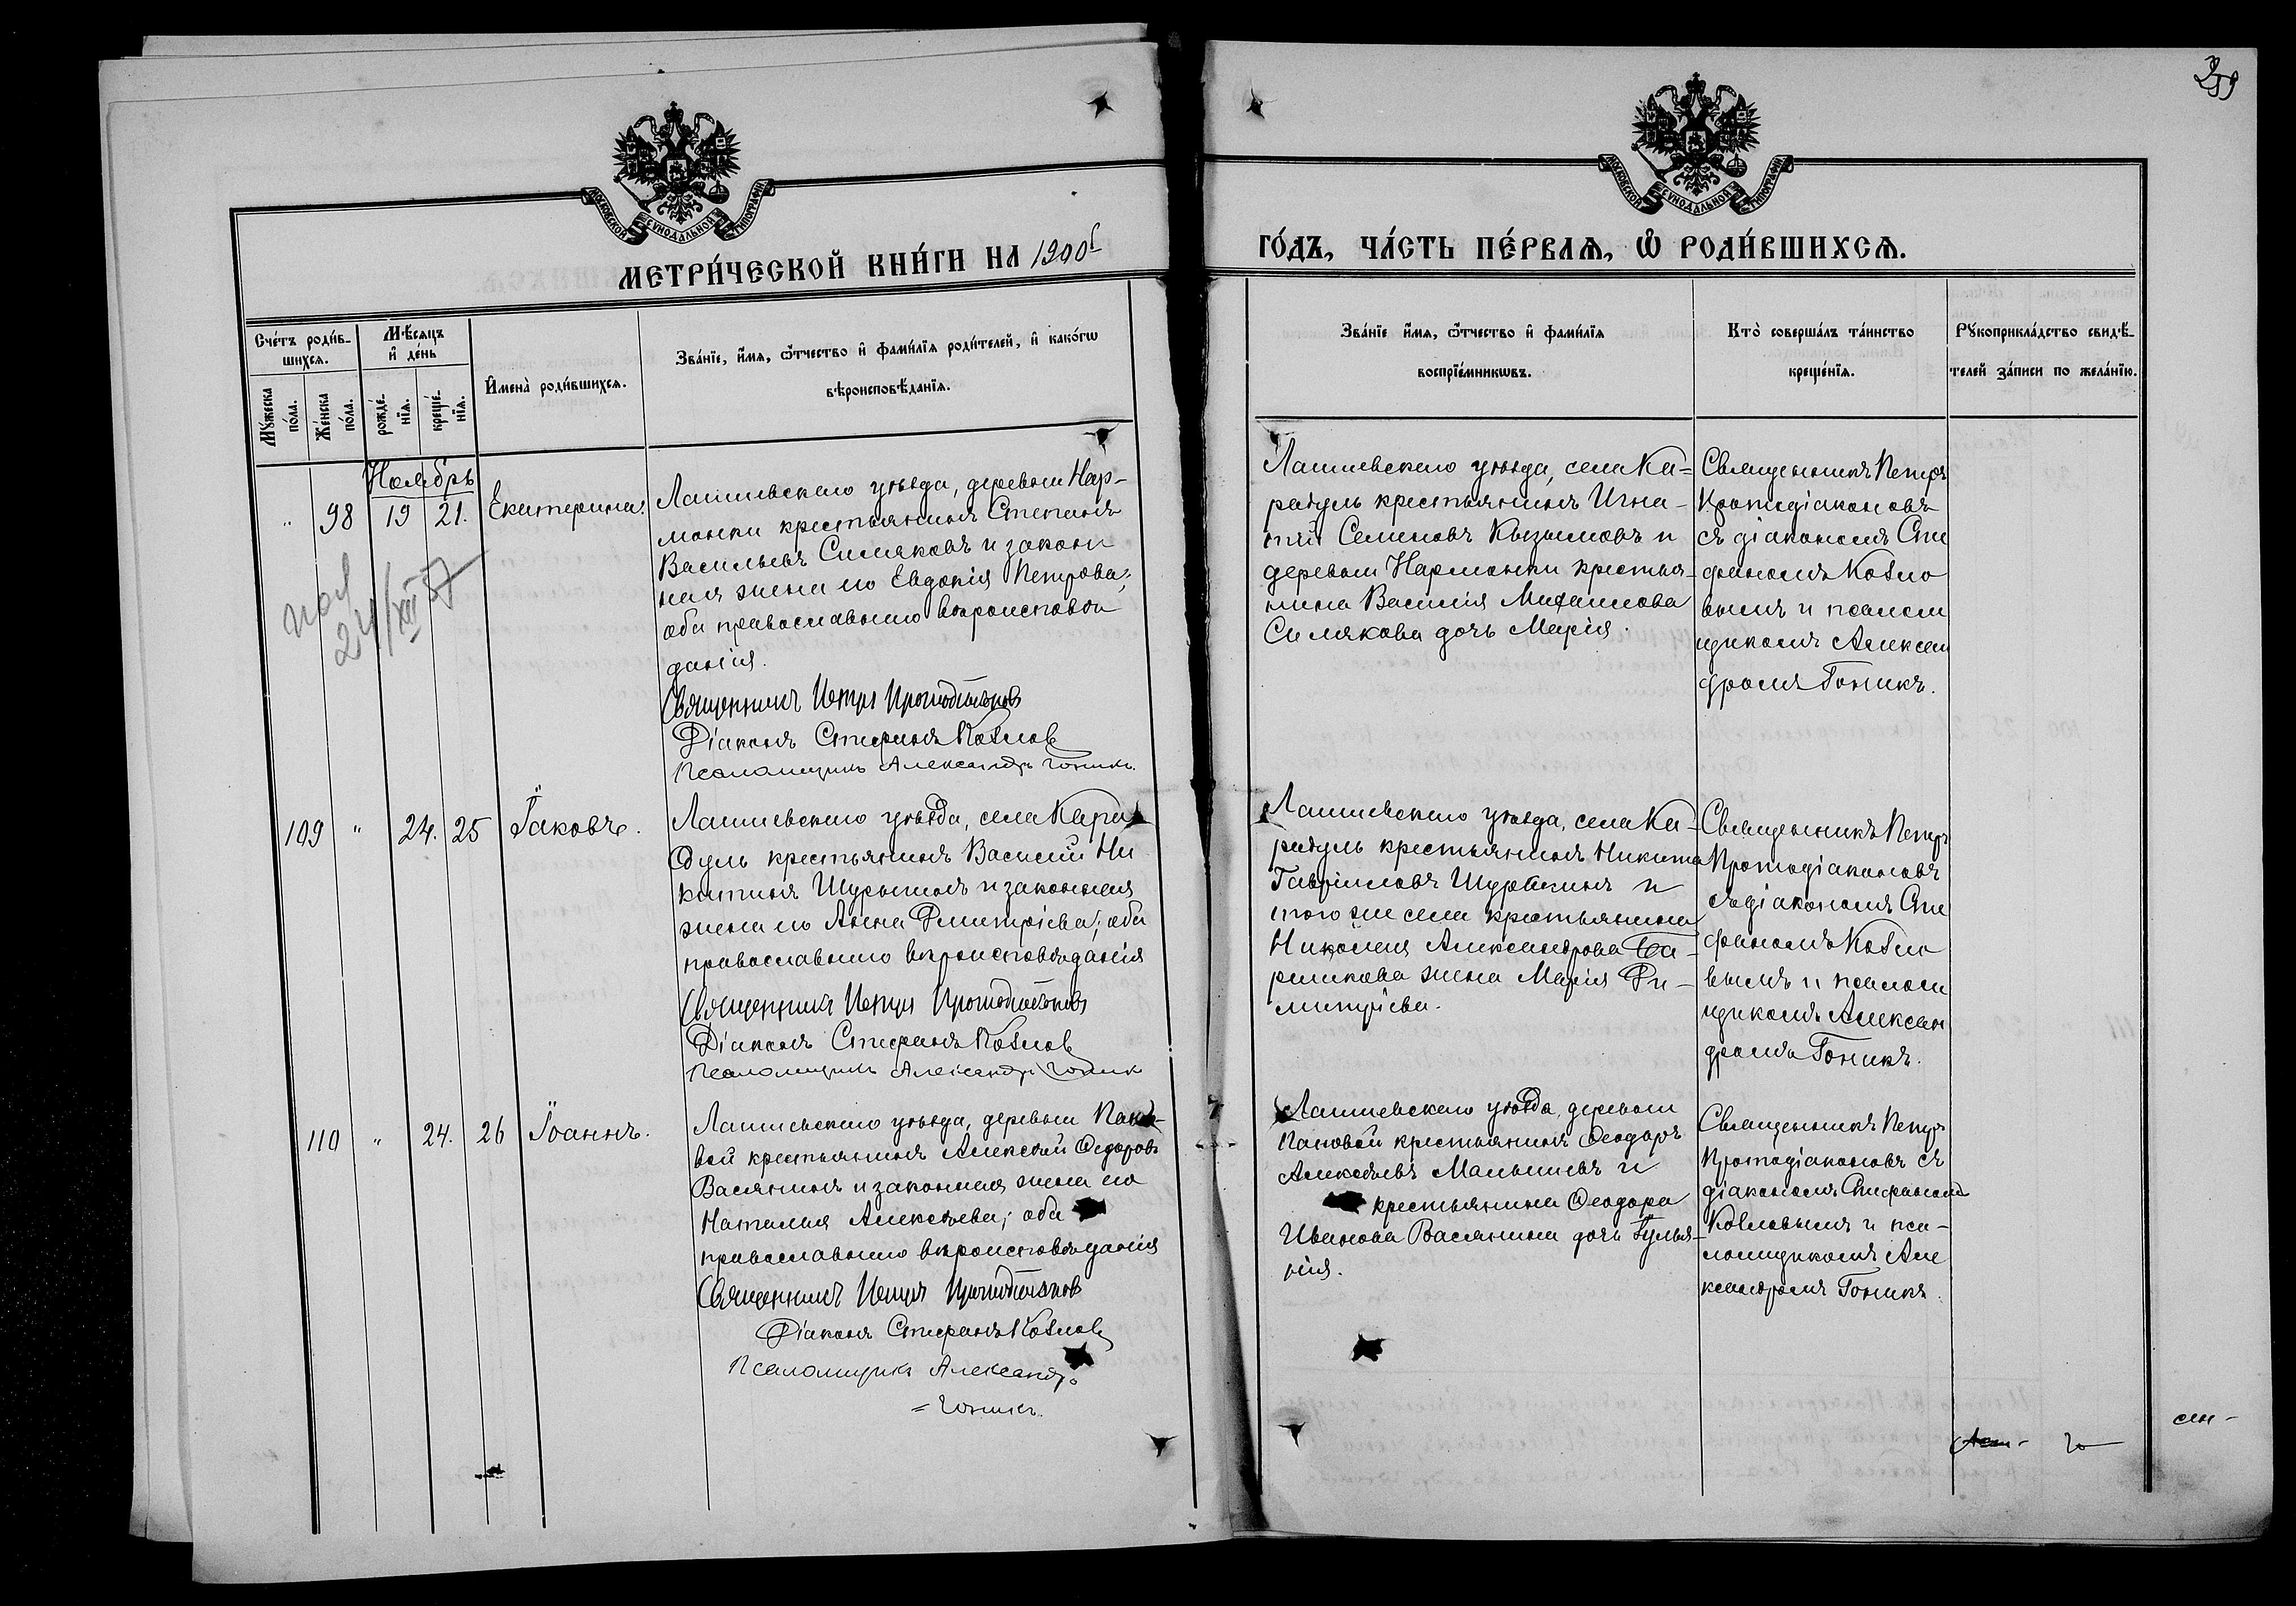 299
МОСКОВСКОЙ СѴНОДАЛЬНОЙ ТИПОГРАФІИ
МОСКОВСКОЙ СѴНОДАЛЬНОЙ ТИПОГРАФІИ
МЕТРИ́ЧЕСКОЙ КНИ́ГИ НА 1900г
ГО́ДЪ, ЧА́СТЬ ПЕ́РВАѦ, Ѡ РОДИ́ВШИХСѦ.
Сче́тъ роди́в-
шихсѧ.
Мꙋ́жеска
по́ла.
Же́нска
по́ла.
Мѣ́сѧцъ
и де́нь
рожде́-
нїѧ.
креще́-
нїѧ.
Имена̀ роди́вшихсѧ.
Зва́нїе, и́мѧ, ѻ́тчество и фами́лїѧ роди́телей, и како́гѡ
вѣроисповѣ́данїѧ.
Зва́нїе и́мѧ, ѻ́тчество и фами́лїѧ
воспрїе́мникѡвъ.
Кто̀ соверша́лъ та́инство
креще́нїѧ.
Рꙋкоприкла́дство свидѣ́-
телей за́писи по жела́нїю.
Ноябрь
" 98 19 21. Екатерина.
24/XII 57
Лаишевскаго уѣзда, деревни Нар-
монки крестьянинъ Степанъ
Васильевъ Симяковъ и закон
ная жена его Евдокія Петрова;
оба православнаго вѣроисповѣ
данія.
Священникъ Петръ Протодіаконовъ
Діаконъ Стефанъ Козлов
Псаломщикъ Александръ Гоникъ.
Лаишевскаго уѣзда, села Ка=
радуль крестьянинъ Игна-
тій Семеновъ Кызымовъ и
деревни Нармонки крестья-
нина Василія Михаилова
Симякова дочь Марія.
Священникъ Петръ
Протодіаконовъ
съ діакономъ Сте
фаномъ Козло
вымъ и псалом
щикомъ Алексан
дромъ Гоникъ.
109 " 24. 25 Іаковъ.
Лаишевскаго уѣзда, села Кара
дуль крестьянинъ Василій Ни
китинъ Шурыгинъ и законная
жена его Анна Димитріева; оба
православнаго вѣроисповѣданія
Священникъ Петръ Протодіаконовъ
Діаконъ Стефанъ Козлов
Псаломщикъ Александръ Гоник
Лаишевскаго уѣзда, села Ка-
радуль крестьянинъ Никита
Гавріиловъ и
того же села крестьянина
Николая Александрова
жена Марія Ди-
митріева.
Священникъ Петръ
Протодіаконовъ
съ діакономъ Сте
фаномъ Козло
вымъ и псалом
щикомъ Алексан
дромъ Гоникъ.
110 " 24. 26 Іоаннъ.
Лаишевскаго уѣзда, деревни Пано-
вой крестьянинъ Алексѣй Ѳедоровъ
Васянинъ и законная жена его
Наталия Алексѣева; оба
православнаго вѣроисповѣданія
Священникъ Петръ Протодіаконов
Діаконъ Стефанъ Козлов
Псаломщикъ Александръ
= Гоникъ.
Лаишевскаго уѣзда, деревни
Пановой крестьянинъ Ѳеодоръ
Алексѣевъ Малышевъ и
крестьянина Ѳеодора
Иванова Васянина дочь
Священникъ Петръ
Протодіаконовъ съ
діакономъ Стефаномъ
Козловымъ и пса-
ломщикомъ Але
ксандромъ Гоникъ.